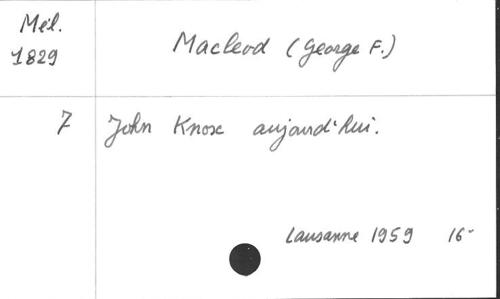 Mél.
1829
Macleod (George F.)
7
John Knox aujourd'hui.
Lausanne 1959 16-